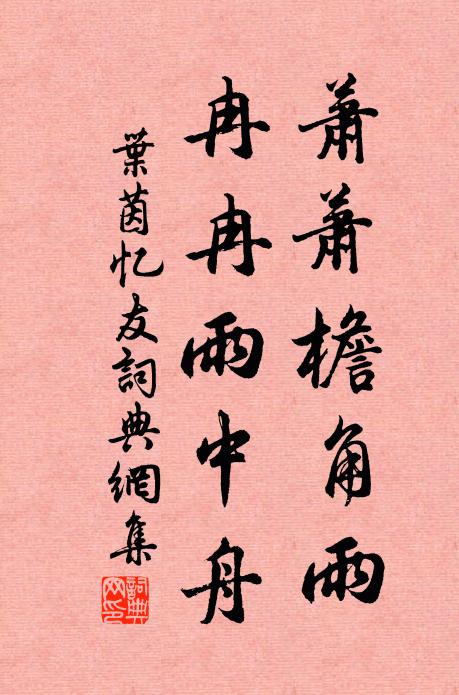 蕭蕭檐角雨
冉冉雨中舟
葉茵忆友詞典網集
詞典網印